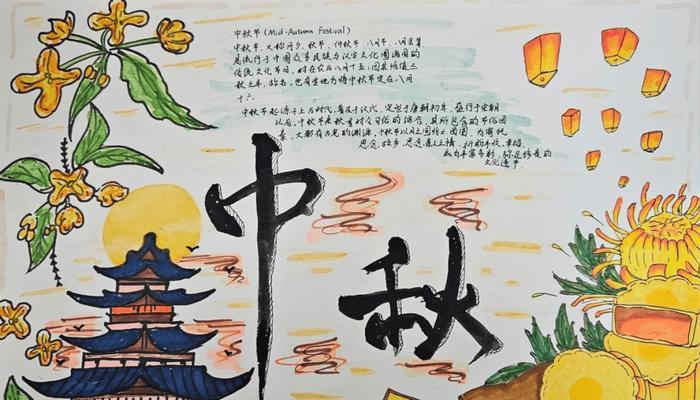 中秋节(Mid-Autumn Festival)
中秋节,又称月夕、秋节、仲秋节、八月节、八月会
是流行于中国众多民族与汉字文化圈诸国的
传统文化节日,时在农历八月十五;因其恰值三
秋之半,故名,也有些地方将中秋节定在八月
十六。
中秋节起源于上古时代,普及于汉代,定型于唐朝初年,盛行于宋朝
以后。中秋节是秋季时令习俗的综合,其所包含的节俗因
素,大都有古老的渊源。中秋节以月之圆兆人团圆,为寄托
思念故乡,思念亲人之情,祈盼丰收、幸福,
成为丰富多彩、弥足珍贵的
文化遗产
中秋